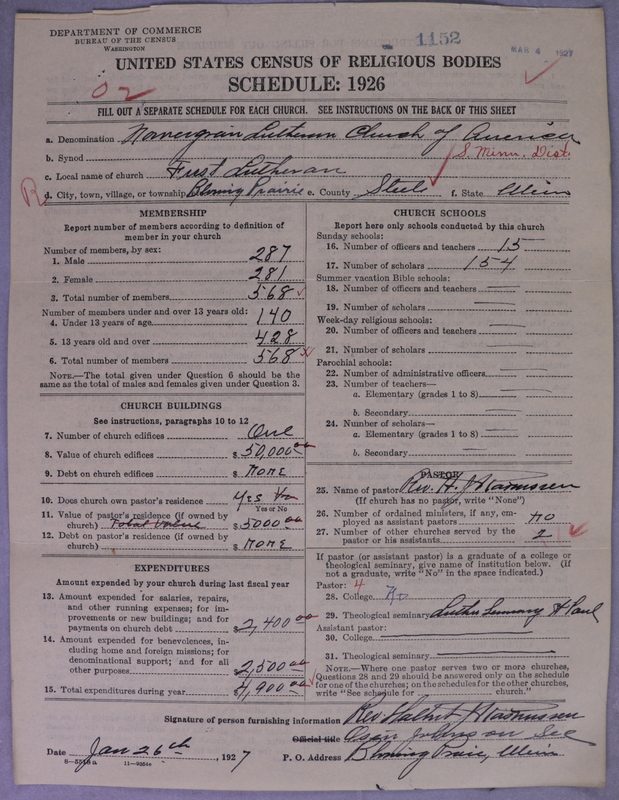 DEPARTMENT OF COMMERCE
BUREAU OF THE CENSUS
WASHINGTON
1152
MAR 4 1927
UNITED STATES CENSUS OF RELIGIOUS BODIES
SCHEDULE: 1926
02
FILL OUT A SEPARATE SCHEDULE FOR EACH CHURCH. SEE INSTRUCTIONS ON THE BACK OF THIS SHEET
a. Denomination Norwegian Lutheran Church of America
b. Synod S. Minn. Dist.
c. Local name of church First Lutheran
R
d. City, town, village, or township Blooming Prairie e. County Steele f. State Minn
MEMBERSHIP
Report number of members according to definition of member in your church
Number of members, by sex:
1. Male 287
2. Female 281
3. Total number of members 568
Number of members under and over 13 years old:
4. Under 13 years of age 140
5. 13 years old and over 428
6. Total number of members 568
NOTE.—The total given under Question 6 should be
same as the total of males and females given under Question 3.
CHURCH BUILDINGS
See instructions, paragraphs 10 to 12
7. Number of church edifices One
8. Value of church edifices $ 50,000 00
9. Debt on church edifices $ none
10. Does church own pastor's residence yes
Yes or No
11. Value of pastor's residence (if owned by
church) Total Value $ 5000 00
12. Debt on pastor's residence (if owned by
church) $ none
EXPENDITURES
Amount expended by your church during last fiscal year
13. Amount expended for salaries, repairs,
and other running expenses; for im-
provements or new buildings; and for
payments on church debt $ 2,400 00
14. Amount expended for benevolences, in-
cluding home and foreign missions; for
denominational support; and for all
other purposes $ 2,500 00
15. Total expenditures during year $ 4,900 00
CHURCH SCHOOLS
Report here only schools conducted by this church
Sunday schools:
16. Number of officers and teachers 15
17. Number of scholars 154
Summer vacation Bible schools:
18. Number of officers and teachers
19. Number of scholars
Week-day religious schools:
20. Number of officers and teachers
21. Number of scholars
Parochial schools:
22. Number of administrative officers
23. Number of teachers—
a. Elementary (grades 1 to 8)
b. Secondary
24. Number of scholars—
a. Elementary (grades 1 to 8)
b. Secondary
PASTOR
25. Name of pastor Rev. H. J Rasmussen
(If church has no pastor, write "None")
26. Number of ordained ministers, if any, em-
ployed as assistant pastors no
27. Number of other churches served by the
pastor or his assistants 2
If pastor (or assistant pastor) is a graduate of a college or
theological seminary, give name of institution below. (If
not a graduate, write "No" in the space indicated.)
Pastor: 4
28. College No
29. Theological seminary Luther Seminary St Paul
Assistant pastor:
30. College
31. Theological seminary
NOTE.—Where one pastor serves two or more churches,
Questions 28 and 29 should be answered only on the schedule
for one of the churches; on the schedules for the other churches,
write "See schedule for church."
Signature of person furnishing information Rev J Rasmussen
Official title Sec
Date Jan 26th, 1927 P. O. Address Blooming Prairie, Minn
8-5516a 11-9354a